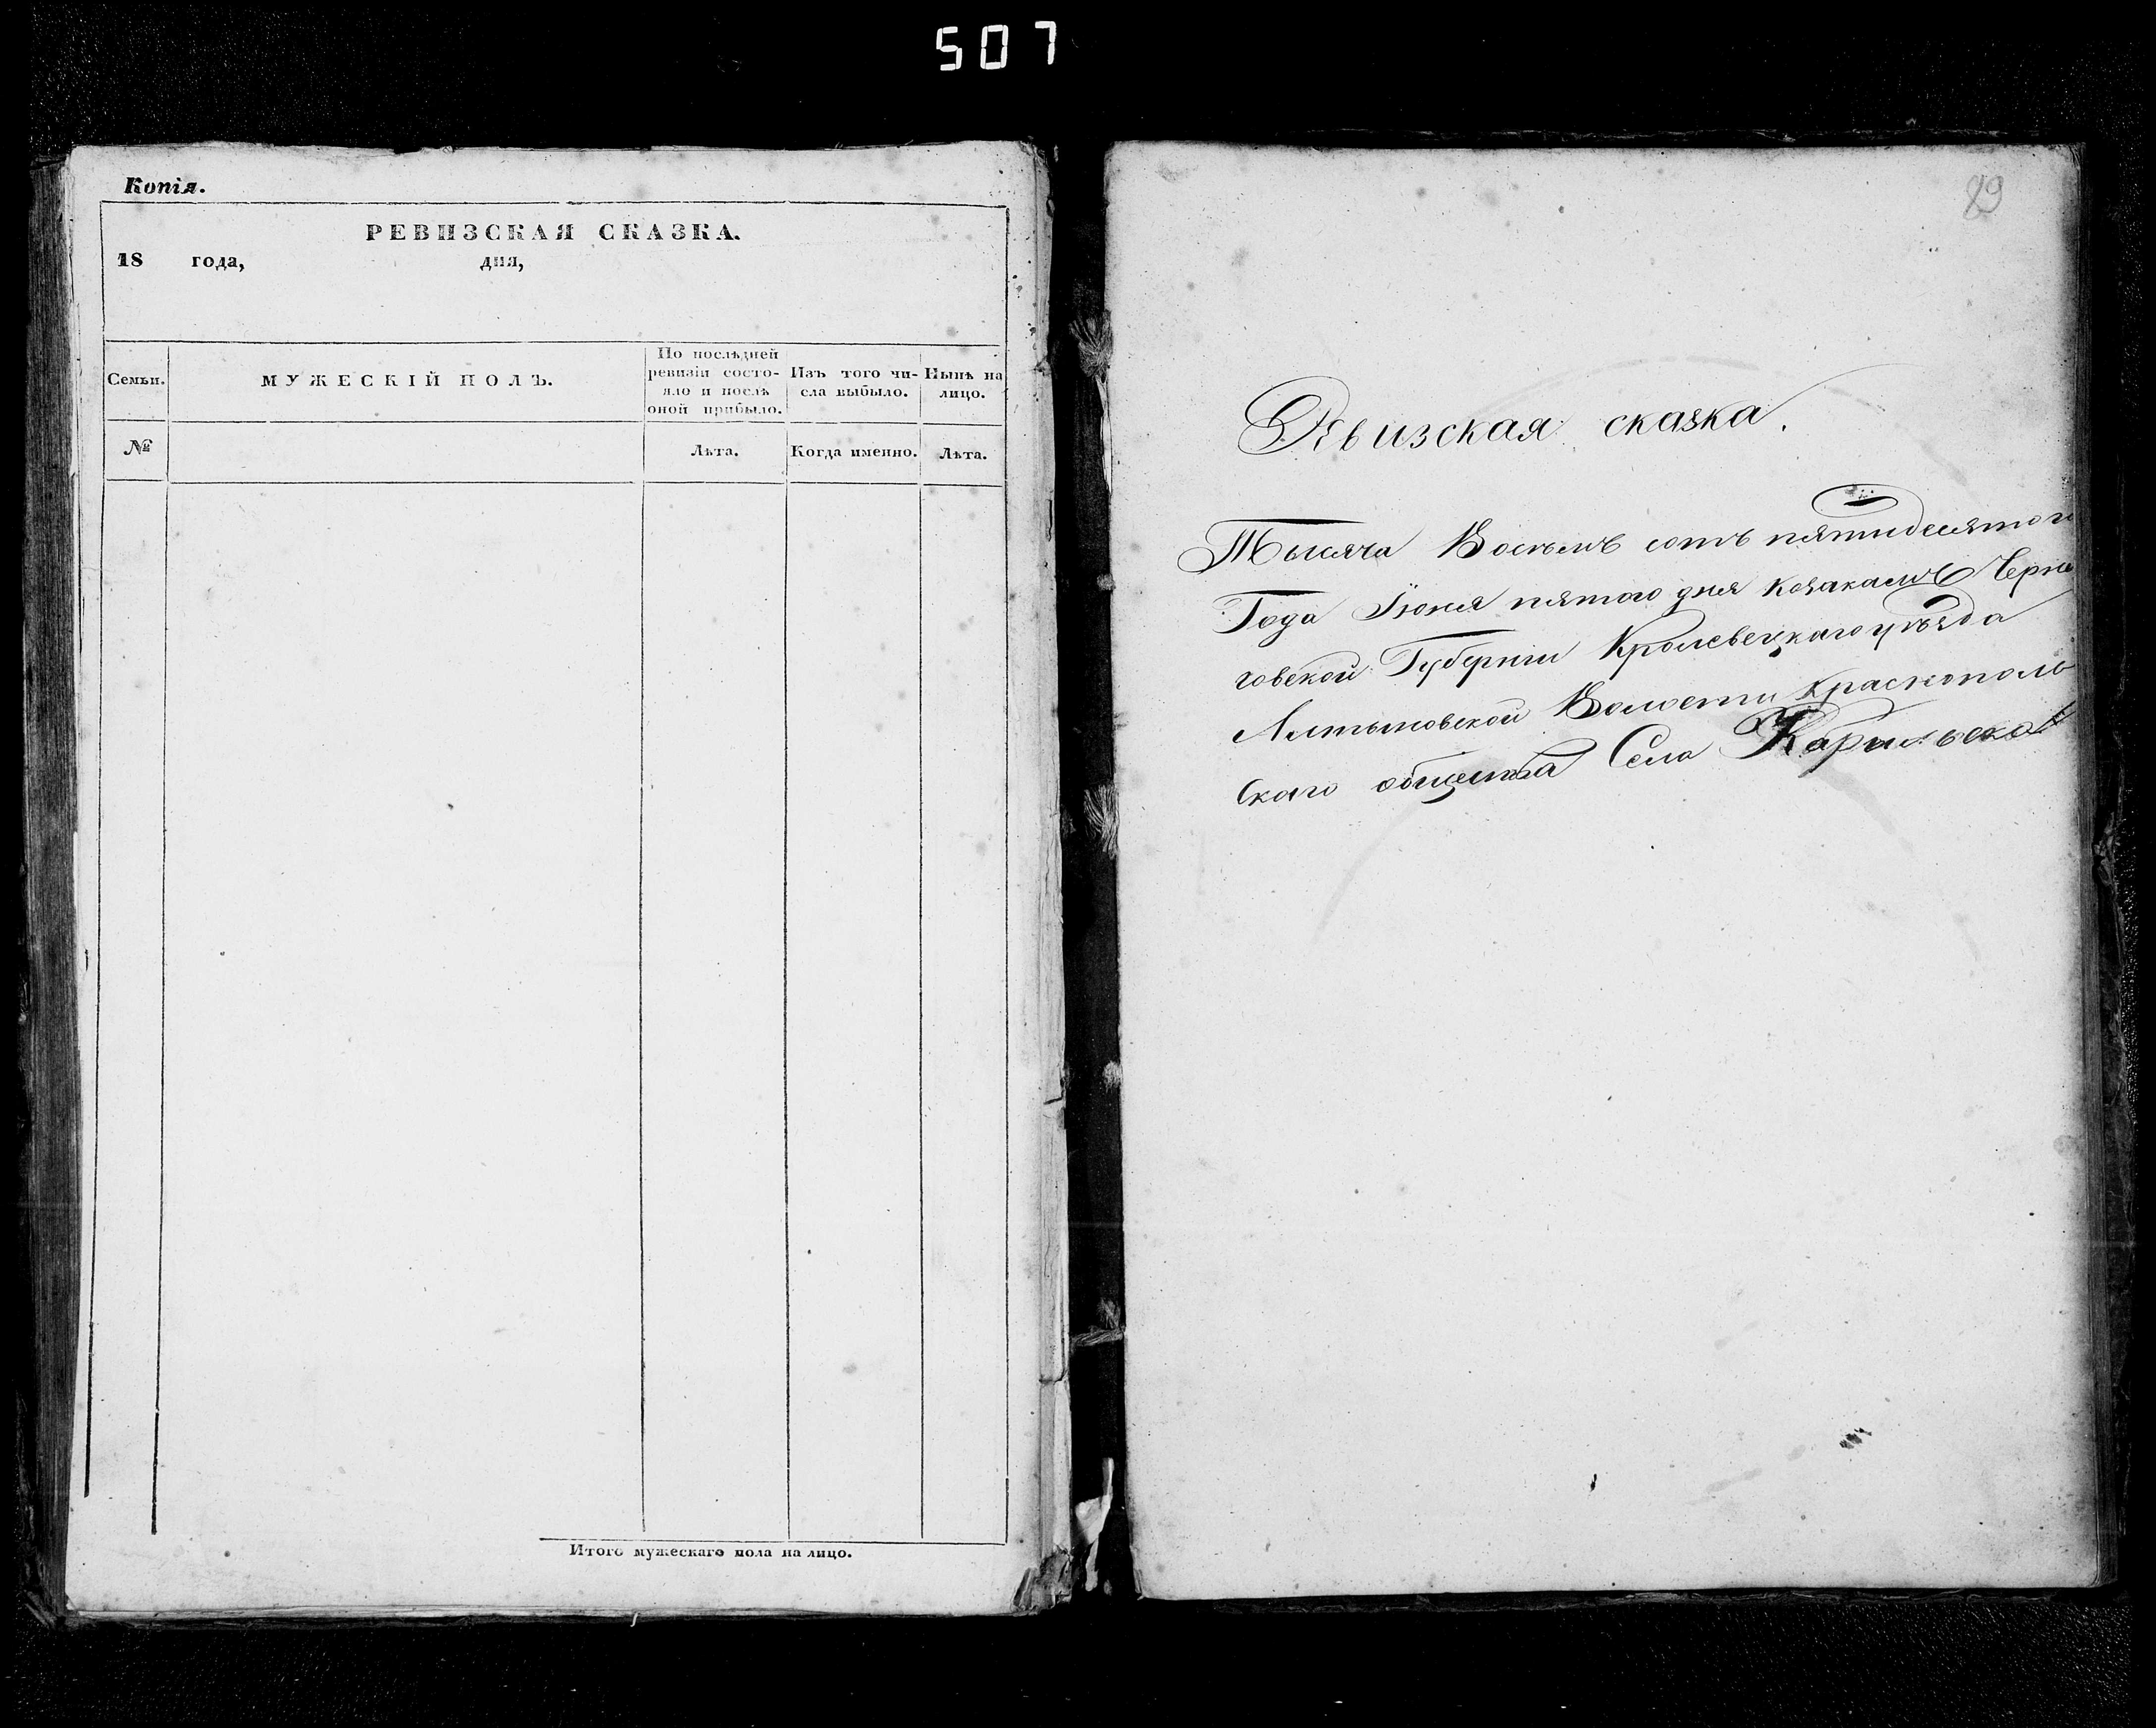 507
Копія.
РЕВИЗСКАЯ СКАЗКА.
18 года, дня,
Семьи.
МУЖЕСКІЙ ПОЛЪ.
По послѣдней
ревизіи состо-
яло и послѣ
оной прибыло.
Изъ того чи-
сла выбыло.
Нынѣ на
лицо.
№
Лѣта.
Когда именно.
Лѣта.
Итого мужескаго пола на лицо.
29
Ревизская сказка.
Тысяча Восемь сотъ пятидесятого
Года Іюня пятого дня козакамъ Черни
говской Губерніи Кролевецкаго уѣзда
Алтыновской Волости Краснополь
скаго общества Села Карыльска